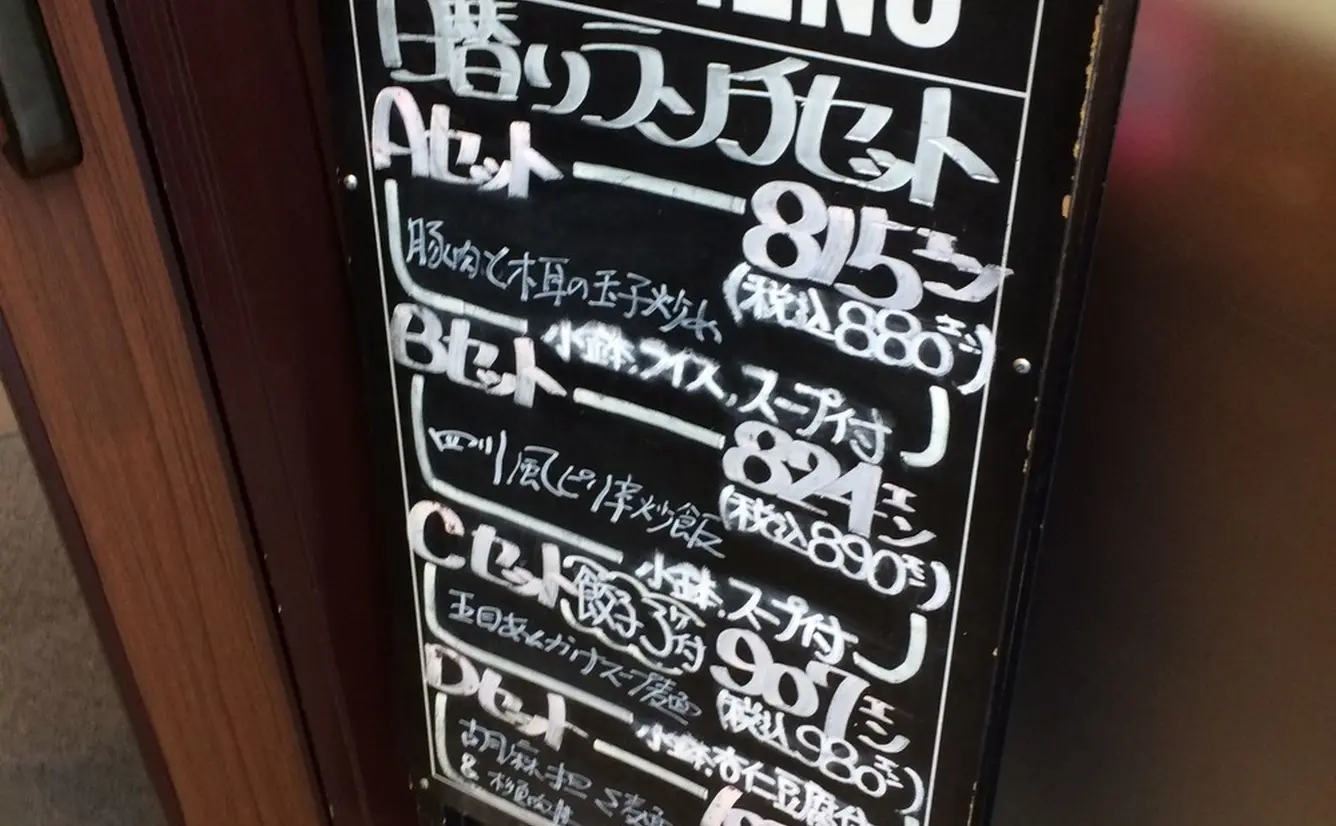 MENU
日替りランチセット
Aセット 815エン
豚肉と木耳の玉子炒め (税込880エン)
小鉢.ライス,スープ付
Bセット 824エン
四川風ピリ辛炒飯 (税込890エン)
小鉢.スープ付
Cセット 餃子3ケ付 907エン
五目あんかけスープ麺 (税込980エン)
小鉢.杏仁豆腐付
Dセット
胡麻担々麺
&